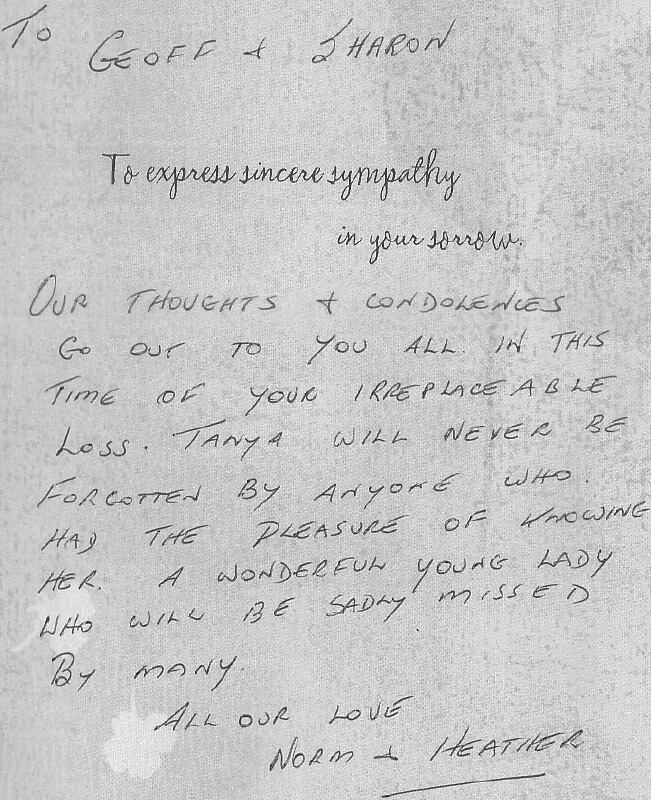 To GEOFF & SHARON
To express sincere sympathy
in your sorrow.
OUR THOUGHTS & CONDOLENCES
GO OUT TO YOU ALL. IN THIS
TIME OF YOUR IRREPLACEABLE
LOSS. TANYA WILL NEVER BE
FORGOTTEN BY ANYONE WHO.
HAD THE PLEASURE OF KNOWING
HER. A WONDERFUL YOUNG LADY
WHO WILL BE SADLY MISSED
BY MANY.
ALL OUR LOVE
NORM & HEATHER